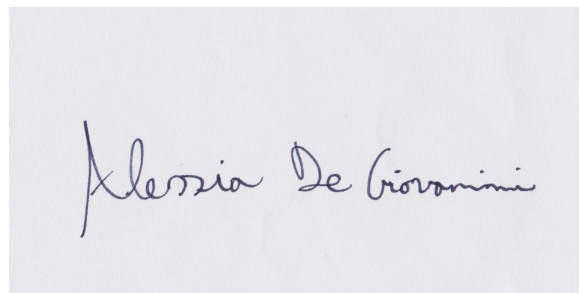 Alessia De Giovannini